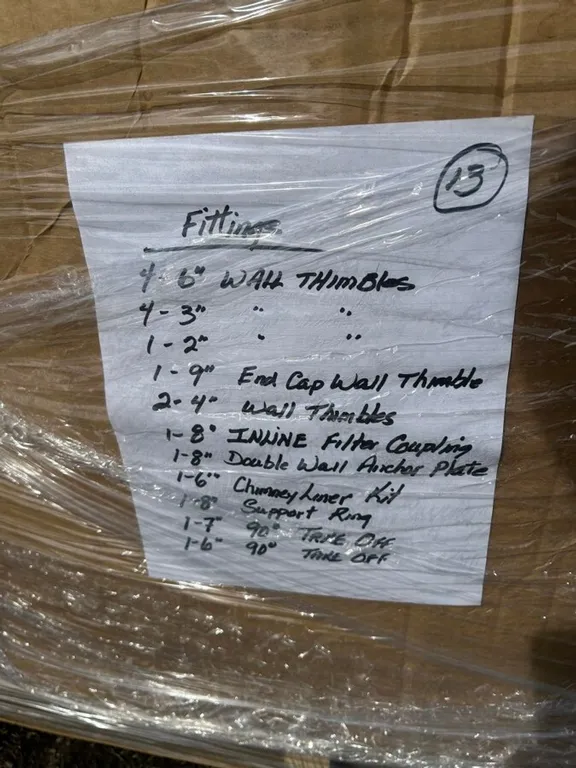 13
Fittings
4- 6" WALL THIMBLES
4- 3" " "
1- 2" " "
1- 9" End Cap Wall Thimble
2- 4" Wall Thimbles
1-8" INLINE Filter Coupling
1-8" Double Wall Anchor Plate
1-6" Chimney Liner Kit
1-8" Support Ring
1-7" 90° TAKE OFF
1-6" 90° TAKE OFF